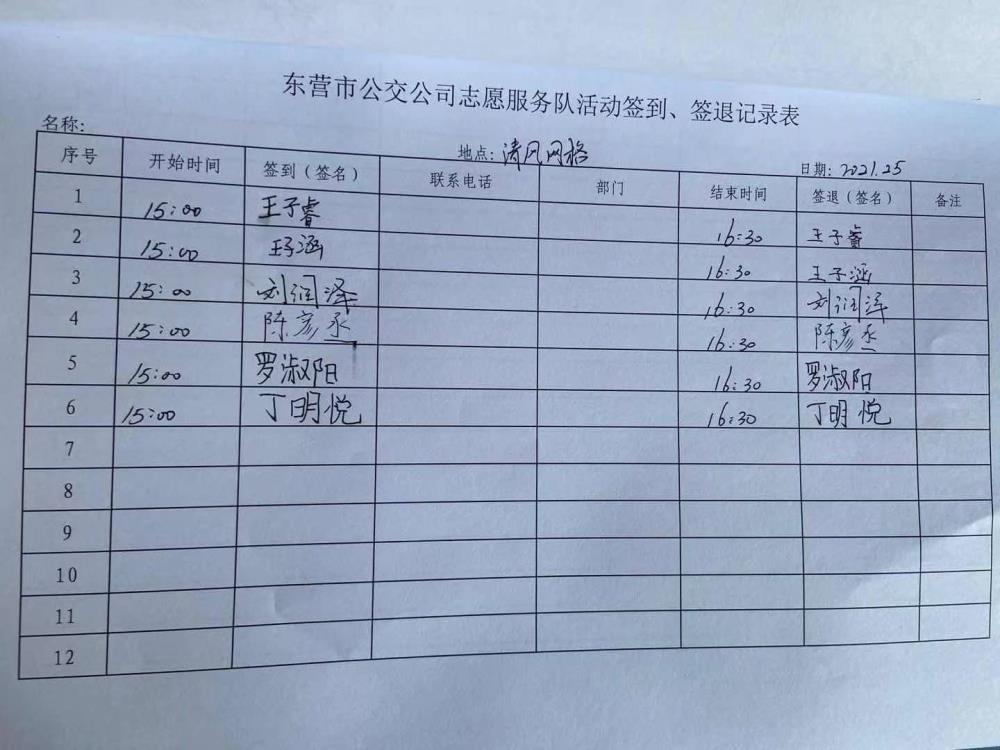 东营市公交公司志愿服务队活动签到、签退记录表
名称: 地点: 清风网格 日期: 2021.25
序号 开始时间 签到（签名） 联系电话 部门 结束时间 签退（签名） 备注
1 15:00 王子睿 16:30 王子睿
2 15:00 王子涵 16:30 王子涵
3 15:00 刘润泽 16:30 刘润泽
4 15:00 陈彦丞 16:30 陈彦丞
5 15:00 罗淑阳 16:30 罗淑阳
6 15:00 丁明悦 16:30 丁明悦
7
8
9
10
11
12